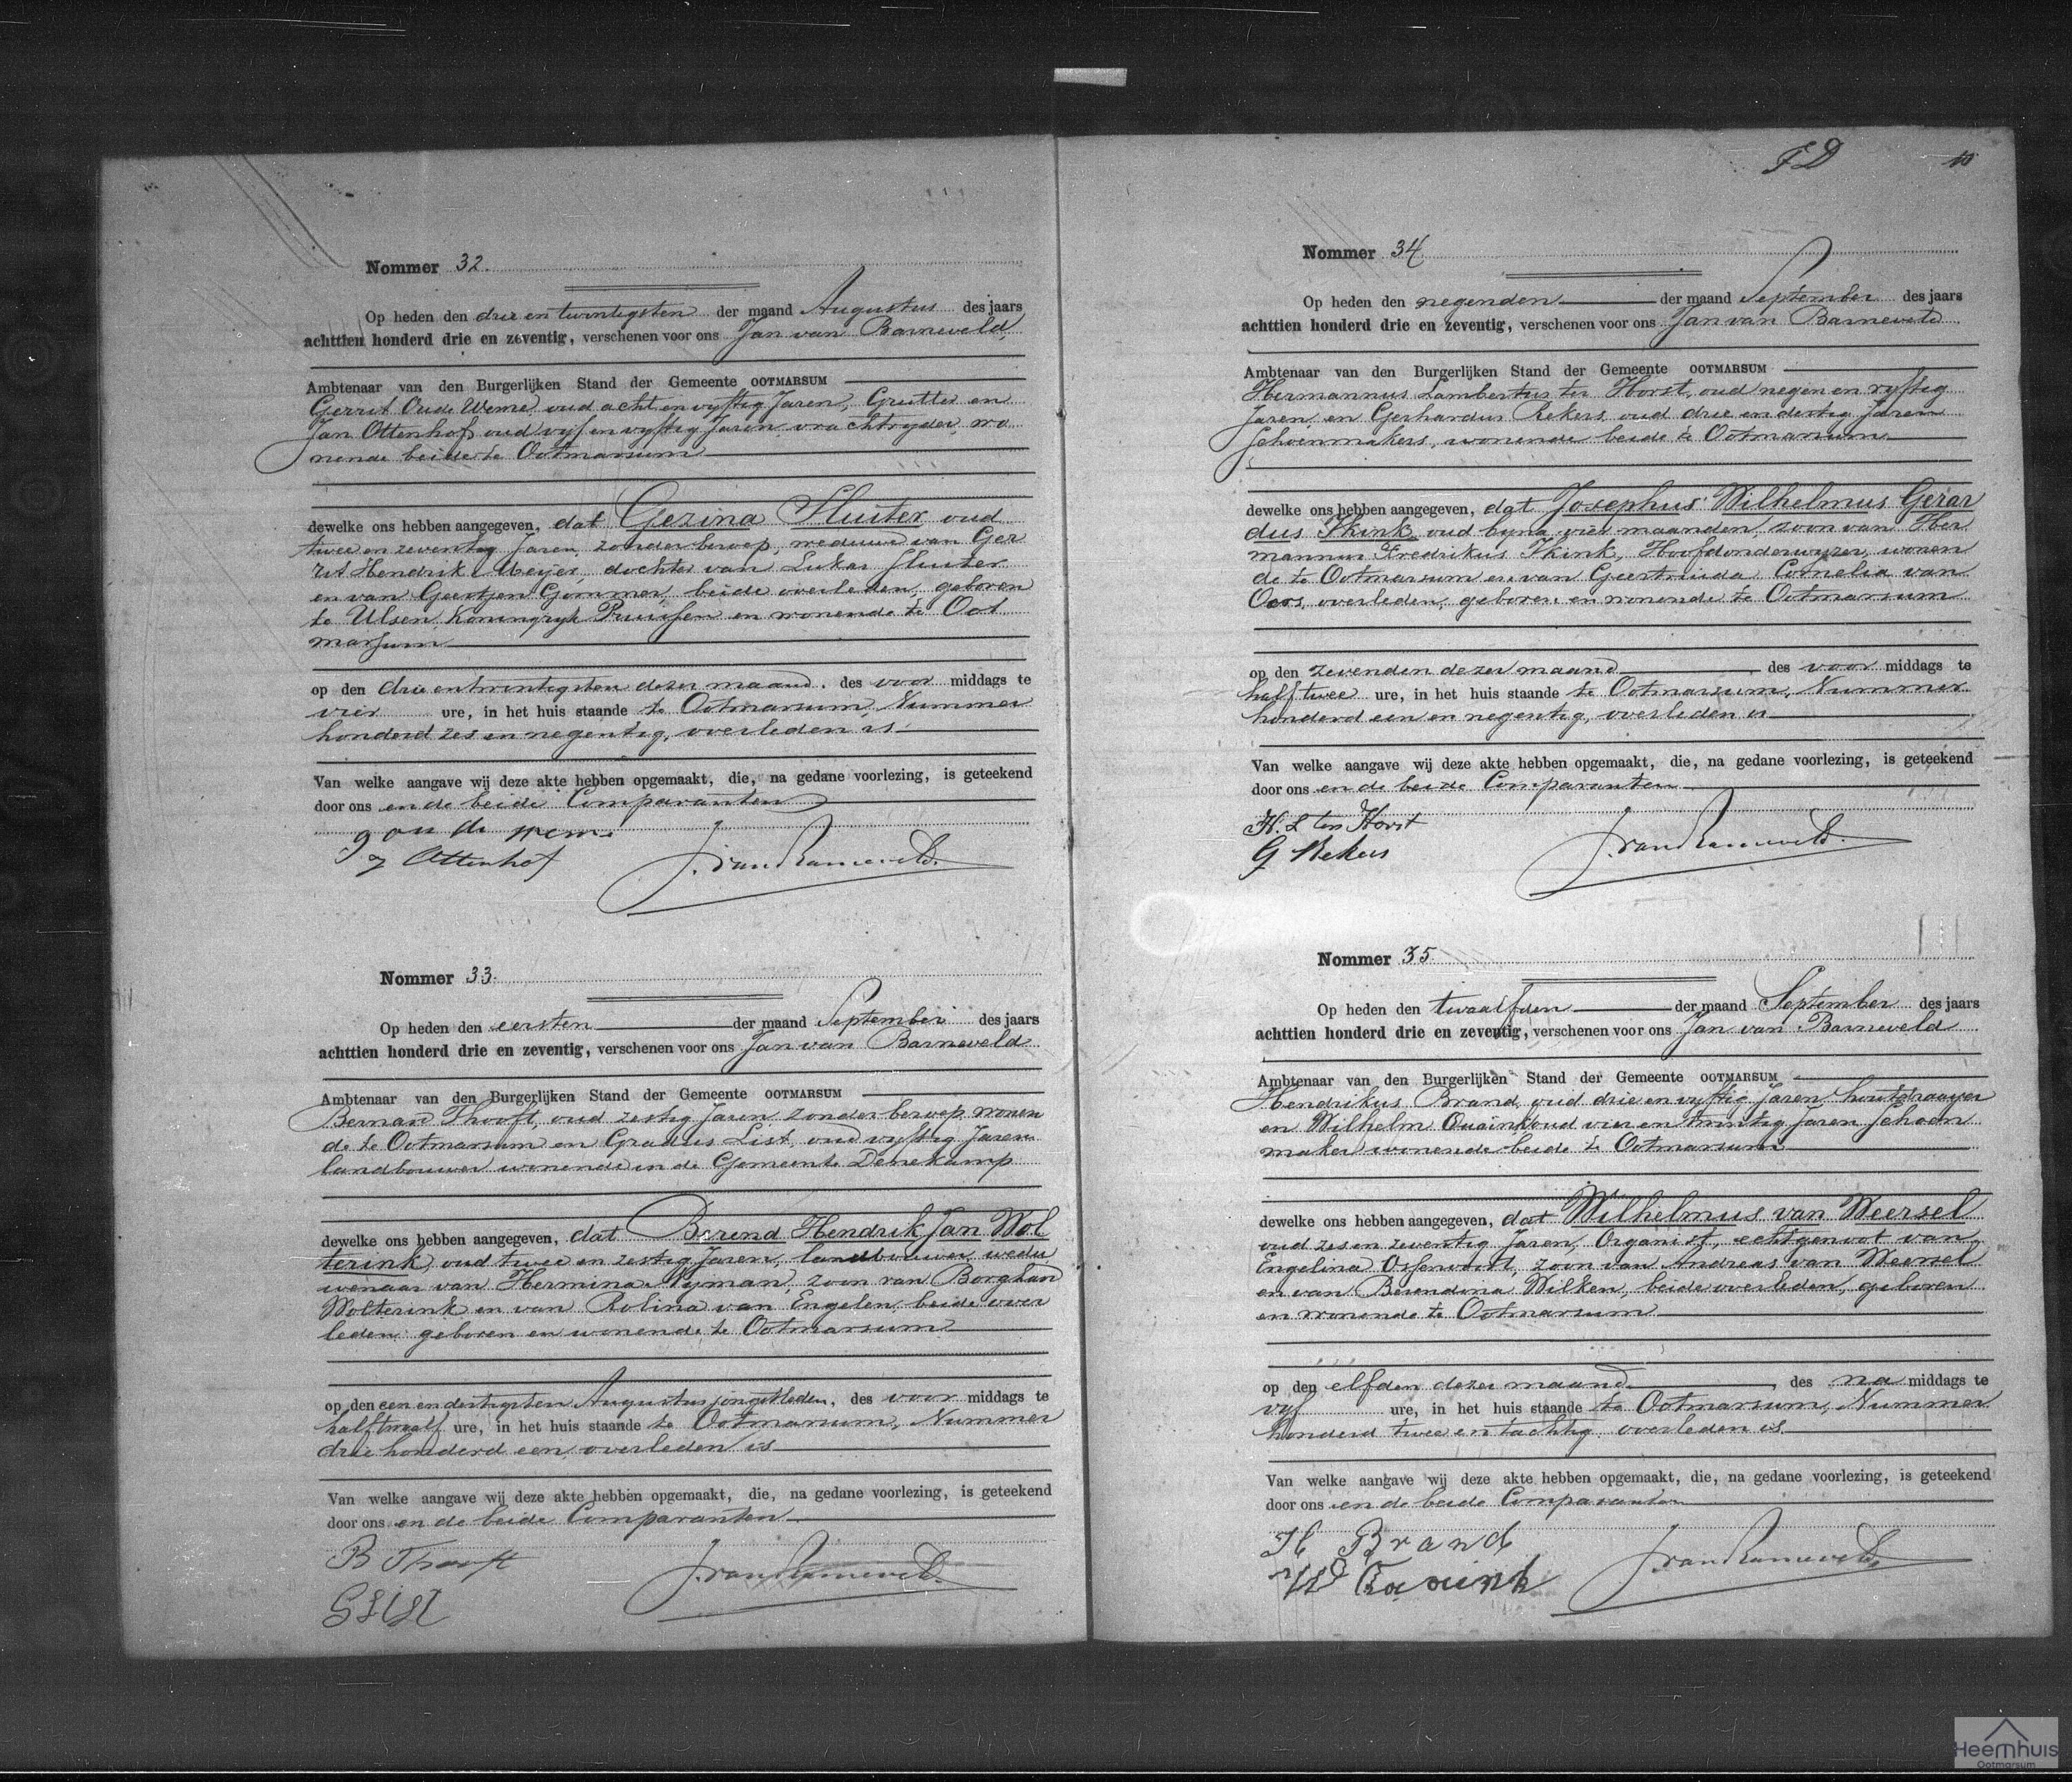 Nommer 32.
Op heden den drie en twintigsten der maand Augustus des jaars
achttien honderd drie en zeventig, verschenen voor ons Jan van Barneveld,
Ambtenaar van den Burgerlijken Stand der Gemeente OOTMARSUM
Gerrit Oude Weme, oud acht en vyftig Jaren, Grutter en
Jan Ottenhof oud vyf en vyftig Jaren vrachtryder, wo
nende beide te Ootmarsum
dewelke ons hebben aangegeven, dat Gezina Sluiter oud
twee en zeventig Jaren, zonder beroep, weduwe van Ger
rit Hendrik Meijer, dochter van Lukas Sluiter
en van Geertjen Gommer, beide overleden, geboren
te Ulsen Koningryk Pruissen en wonende te Oot
marsum
op den drie en twintigsten dezer maand, des voor middags te
vier ure, in het huis staande te Ootmarsum, Nummer
honderd zes en negentig, overleden is
Van welke aangave wij deze akte hebben opgemaakt, die, na gedane voorlezing, is geteekend
door ons en de beide Comparanten
g ou de wem
J Ottenhof J. van Barneveld.
Nommer 33.
Op heden den eersten der maand September des jaars
achttien honderd drie en zeventig, verschenen voor ons Jan van Barneveld
Ambtenaar van den Burgerlijken Stand der Gemeente OOTMARSUM
Bernard Thooft, oud zestig Jaren zonder beroep, wonen
de te Ootmarsum en Gradus List, oud vyftig Jaren
landbouwer wonende in de Gemeente Denekamp
dewelke ons hebben aangegeven, dat Berend Hendrik Jan Wol
terink, oud twee en zestig Jaren, landbouwer, wedu
wenaar van Hermina Nyman, zoon van
Wolterink en van Rolina van Engelen, beide over
leden geboren en wonende te Ootmarsum
op den een en dertigsten Augustus jongstleden, des voor middags te
half twaalf ure, in het huis staande te Ootmarsum, Nummer
drie honderd een, overleden is
Van welke aangave wij deze akte hebben opgemaakt, die, na gedane voorlezing, is geteekend
door ons en de beide Comparanten
B Thooft J. van Barneveld.
G List
F D
Nommer 34
Op heden den negenden der maand September des jaars
achttien honderd drie en zeventig, verschenen voor ons Jan van Barneveld
Ambtenaar van den Burgerlijken Stand der Gemeente OOTMARSUM
Hermannus Lambertus ter Horst, oud negen en vyftig
Jaren en Gerhardus Rekers oud drie en dertig Jaren
Schoenmakers, wonende beide te Ootmarsum
dewelke ons hebben aangegeven, dat Josephus Wilhelmus Gerar
dus Skink, oud byna vier maanden, zoon van Her
mannus Fredrikus Skink, Hoofdonderwyzer, wonen
de te Ootmarsum en van Geertruida Cornelia van
Oers, overleden, geboren en wonende te Ootmarsum
op den zevenden dezer maand, des voor middags te
half twee ure, in het huis staande te Ootmarsum, Nummer
honderd een en negentig, overleden is
Van welke aangave wij deze akte hebben opgemaakt, die, na gedane voorlezing, is geteekend
door ons en de beide Comparanten
H. L ter Horst
G Rekers J. van Barneveld.
Nommer 35
Op heden den twaalfden der maand September des jaars
achttien honderd drie en zeventig, verschenen voor ons Jan van Barneveld
Ambtenaar van den Burgerlijken Stand der Gemeente OOTMARSUM
Hendrikus Brand, oud drie en vyftig Jaren, houtdraayer
en Wilhelm oud vier en twintig Jaren Schoen
maker wonende beide te Ootmarsum
dewelke ons hebben aangegeven, dat Wilhelmus van Weersel
oud zes en zeventig Jaren, Organist, echtgenoot van
Engelina Ossenvoort, zoon van Andreas van Weersel
en van Berendina Wilken, beide overleden, geboren
en wonende te Ootmarsum
op den elfden dezer maand, des na middags te
vyf ure, in het huis staande te Ootmarsum, Nummer
honderd twee en tachtig overleden is
Van welke aangave wij deze akte hebben opgemaakt, die, na gedane voorlezing, is geteekend
door ons en de beide Comparanten
H Brand
W J. van Barneveld.
Heemhuis
Ootmarsum